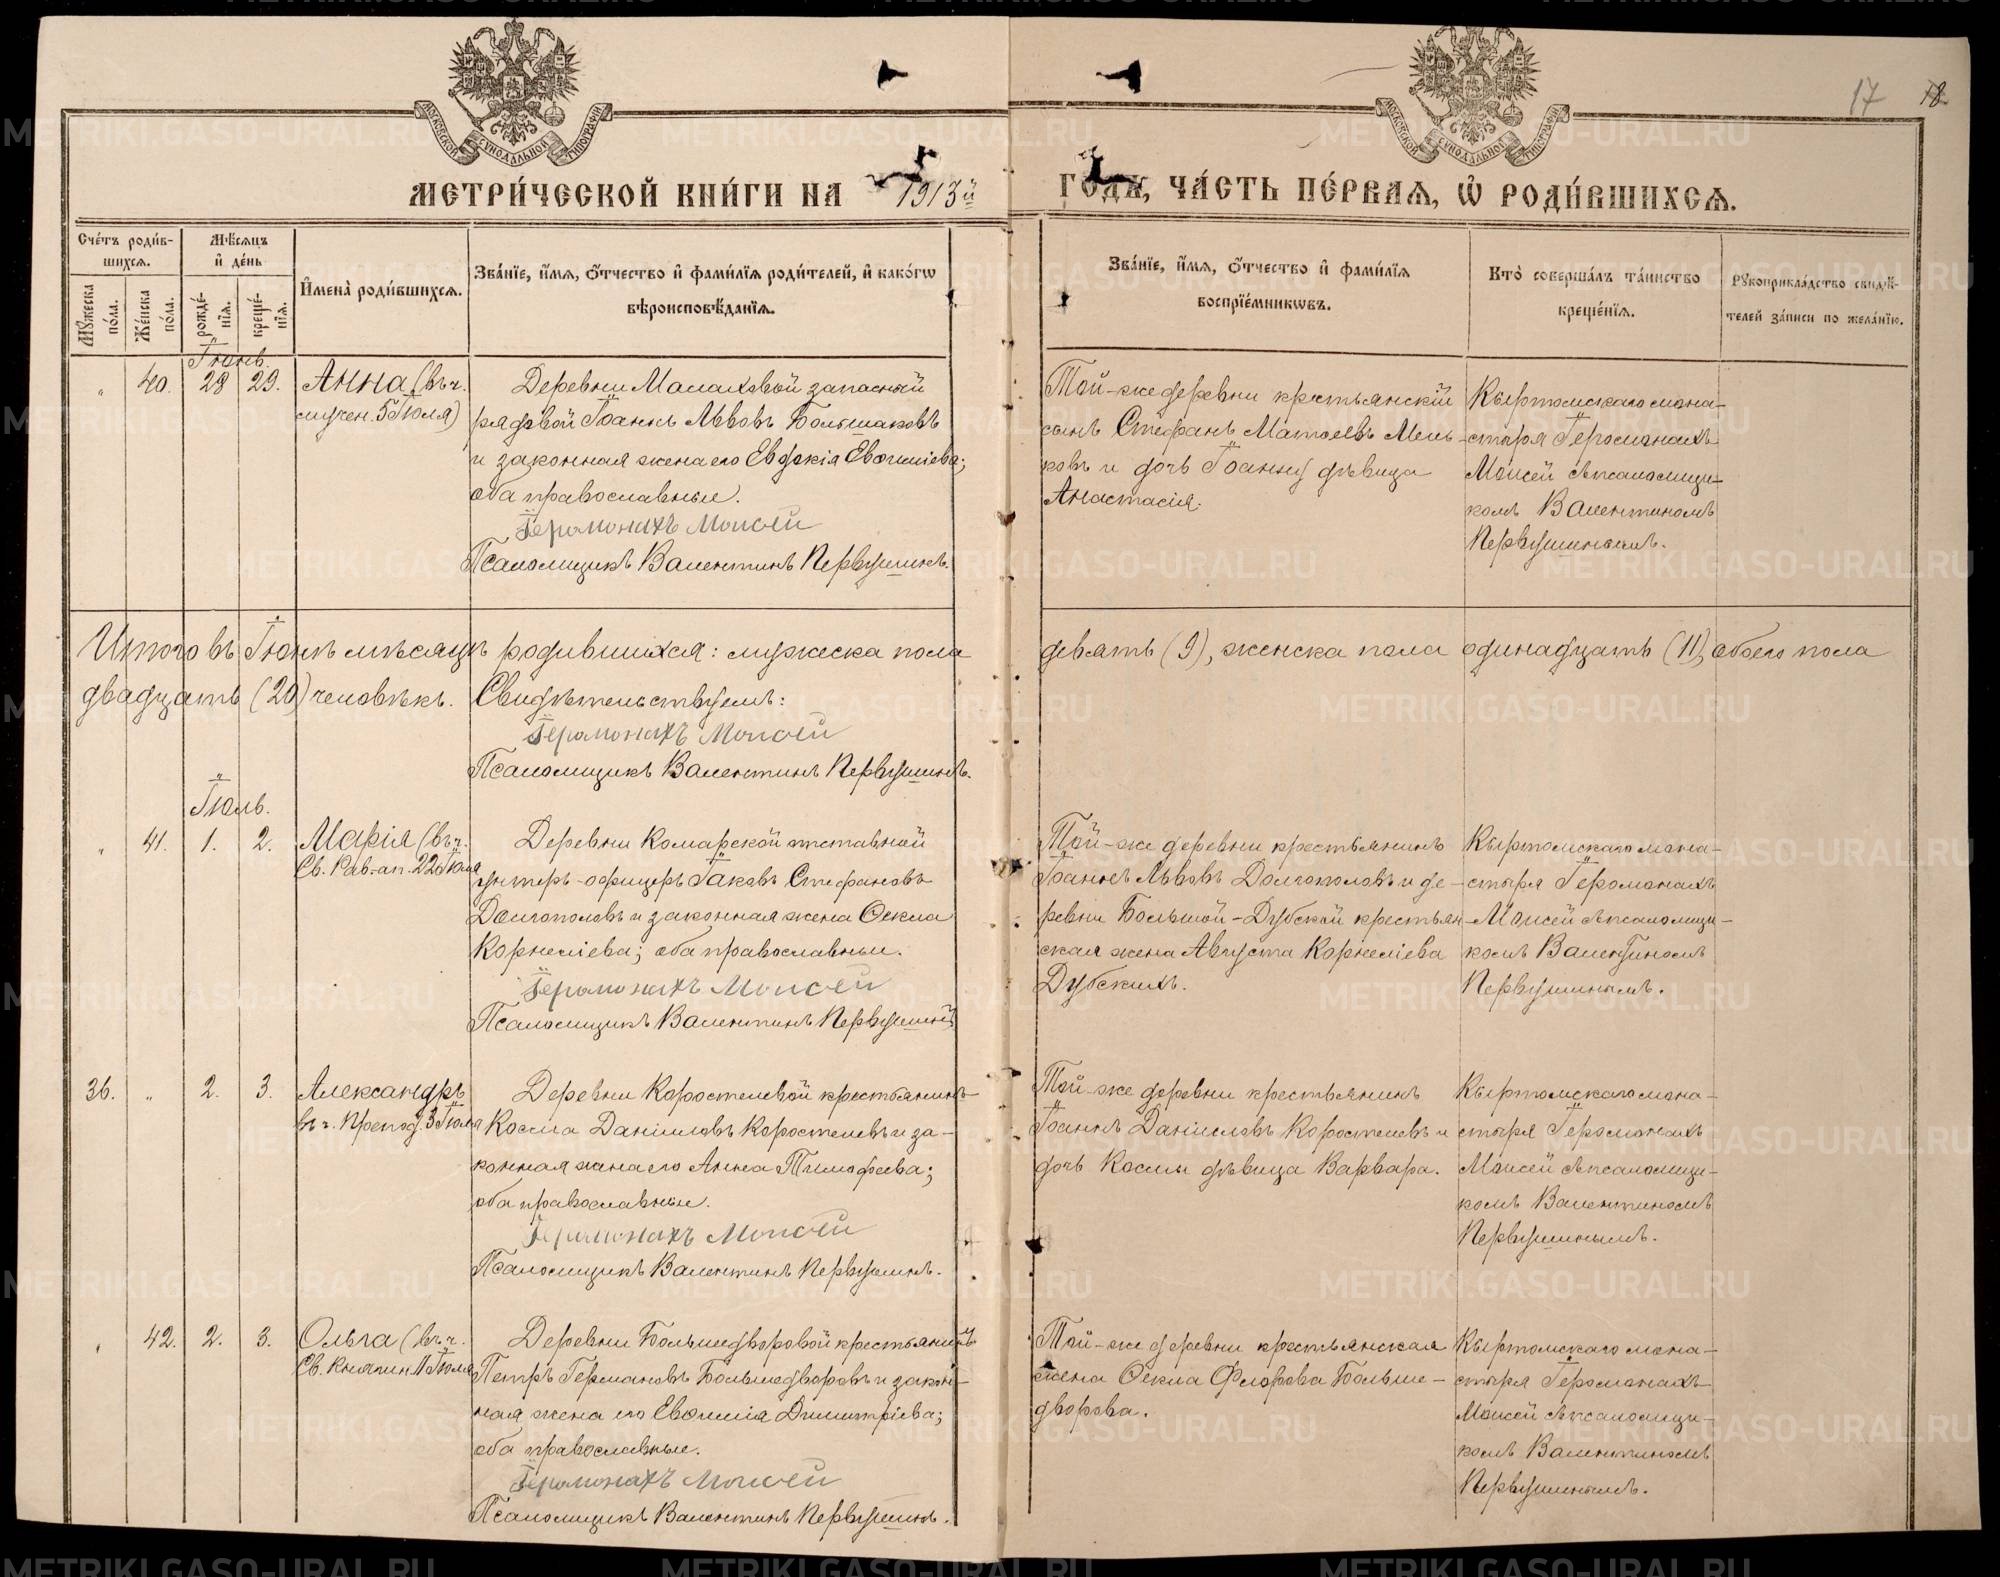 МОСКОВСКОЙ СУНОДАЛЬНОЙ ТИПОГРАФІИ
МОСКОВСКОЙ СУНОДАЛЬНОЙ ТИПОГРАФІИ
17 18.
МЕТРИ́ЧЕСКОЙ КНИ́ГИ НА 1913й ГОДЪ, ЧА́СТЬ ПЕ́РВАЯ, Ѽ РОДИ́ВШИХСЯ.
Сче́тъ роди́в-
шихся.
Мѣ́сяцъ
и҆ де́нь
Мꙋ́жеска по́ла.
Же́нска по́ла.
рожде́-
нїя.
креще́-
нїя.
И҆мена̀ роди́вшихся.
Зва́нїе, и҆́мя, ѻ҆́тчество и҆ фами́лїя роди́телей, и҆ како́гѡ
вѣроисповѣ́данїя.
Зва́нїе, и҆́мя, ѻ҆́тчество и҆ фами́лїя
воспрїе́мникѡвъ.
Кто̀ соверша́лъ та́инство
креще́нїя.
Рꙋкоприкла́дство свидѣ́-
телей за́писи по жела́нїю.
Іюнь.
" 40. 28 29. Анна (въ ч.
мучен. 5 Іюля)
Деревни Малаховой запасный
рядовой Іоаннъ Львовъ Большаковъ
и законная жена его Евдокія Евѳиміева;
оба православные.
Іеромонахъ Моисей
Псаломщикъ Валентинъ Первушинъ.
Той-же деревни крестьянскій
сынъ Стефанъ Матѳеевъ Мель-
ковъ и дочь Іоанну дѣвица
Анастасія.
Кыртомскаго мона-
стыря Іеромонахъ
Моисей съ псаломщи-
комъ Валентиномъ
Первушинымъ.
Итого въ Іюнѣ мѣсяцѣ родившихся: мужеска пола девять (9), женска пола одинадцать (11), обоего пола
двадцать (20) человѣкъ. Свидѣтельствуемъ:
Іеромонахъ Моисей
Псаломщикъ Валентинъ Первушинъ.
Іюль.
" 41. 1. 2. Марія (въ ч.
Св. Рав.-ап. 22 Іюля
Деревни Комарской отставной
унтеръ-офицеръ Іаковъ Стефановъ
Долгополовъ и законная жена Ѳекла
Корниліева; оба православные.
Іеромонахъ Моисей
Псаломщикъ Валентинъ Первушинъ
Той-же деревни крестьянинъ
Іоаннъ Львовъ Долгополовъ и де-
ревни Большой-Дубской крестьян-
ская жена Августа Корниліева
Дубскихъ.
Кыртомскаго мона-
стыря Іеромонахъ
Моисей съ псаломщи-
комъ Валентиномъ
Первушинымъ.
36. " 2. 3. Александръ
въ ч. Препод. 3 Іюля
Деревни Коростелевой крестьянинъ
Косма Даніиловъ Коростелевъ и за-
конная жена его Анна Тимофеева;
оба православные.
Іеромонахъ Моисей
Псаломщикъ Валентинъ Первушинъ.
Той-же деревни крестьянинъ
Іоаннъ Даніиловъ Коростелевъ и
дочь Космы дѣвица Варвара.
Кыртомскаго мона-
стыря Іеромонахъ
Моисей съ псаломщи-
комъ Валентиномъ
Первушинымъ.
" 42. 2. 3. Ольга (въ ч.
Св. Княгин. 11 Іюля
Деревни Большедворовой крестьянинъ
Петръ Германовъ Большедворовъ и закон-
ная жена его Евѳимія Димитріева;
оба православные.
Іеромонахъ Моисей
Псаломщикъ Валентинъ Первушинъ.
Той-же деревни крестьянская
жена Ѳекла Флорова Больше-
дворова.
Кыртомскаго мона-
стыря Іеромонахъ
Моисей съ псаломщи-
комъ Валентиномъ
Первушинымъ.
METRIKI.GASO-URAL.RU